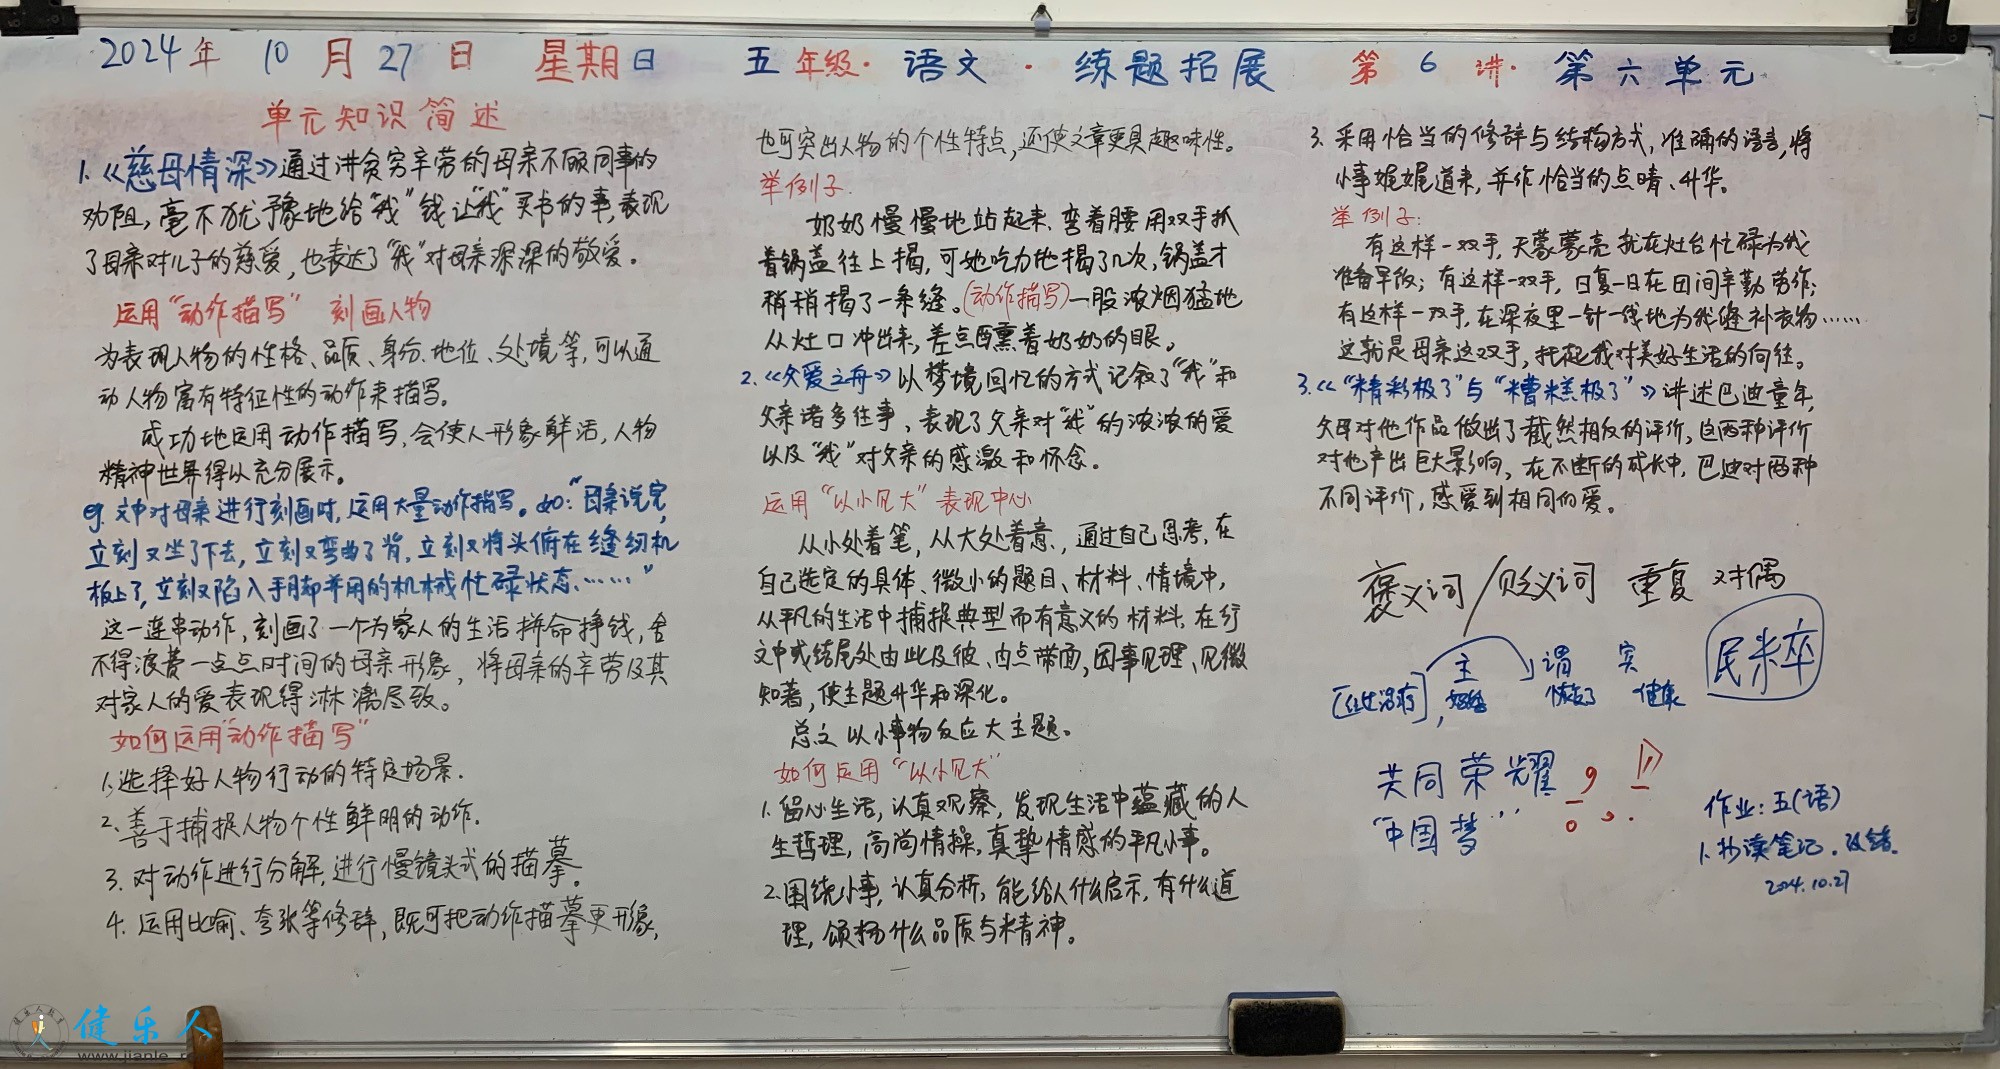 2024年 10月27日 星期日 五年级·语文·练题拓展 第6讲·第六单元
单元知识简述
1.《慈母情深》通过讲贫穷辛劳的母亲不顾同事的
劝阻，毫不犹豫地给“我”钱让“我”买书的事，表现
了母亲对儿子的慈爱，也表达了“我”对母亲深深的敬爱。
运用“动作描写” 刻画人物
为表现人物的性格、品质、身份、地位、处境等，可以通
动人物富有特征性的动作来描写。
成功地运用动作描写，会使人形象鲜活，人物
精神世界得以充分展示。
eg.文中对母亲进行刻画时，运用大量动作描写。如：“母亲说完，
立刻又坐了下去，立刻又弯曲了背，立刻又将头俯在缝纫机
板上了，立刻又陷入手脚并用的机械忙碌状态……”
这一连串动作，刻画了一个为家人的生活拼命挣钱，舍
不得浪费一点点时间的母亲形象，将母亲的辛劳及其
对家人的爱表现得淋漓尽致。
如何运用“动作描写”
1.选择好人物行动的特定场景.
2.善于捕捉人物个性鲜明的动作.
3.对动作进行分解，进行慢镜头式的描摹。
4.运用比喻、夸张等修辞，既可把动作描摹更形象，
也可突出人物的个性特点，还使文章更具趣味性。
举例子.
奶奶慢慢地站起来、弯着腰用双手抓
着锅盖往上揭，可她吃力地揭了几次，锅盖才
稍稍揭了一条缝。(动作描写)一股浓烟猛地
从灶口冲出来，差点熏着奶奶的眼。
2.《父爱之舟》以梦境回忆的方式记叙了“我”和
父亲诸多往事，表现了父亲对“我”的浓浓的爱
以及“我”对父亲的感激和怀念。
运用“以小见大”表现中心
从小处着笔，从大处着意，通过自己思考，在
自己选定的具体、微小的题目、材料、情境中，
从平凡的生活中捕捉典型而有意义的材料，在行
文中或结尾处由此及彼、由点带面，因事见理、见微
知著，使主题升华和深化。
总之以小事物反应大主题。
如何应用“以小见大”
1.留心生活，认真观察，发现生活中蕴藏的人
生哲理，高尚情操，真挚情感的平凡小事。
2.围绕小事，认真分析，能给人什么启示，有什么道
理，颂扬什么品质与精神。
3.采用恰当的修辞与结构方式，准确的语言，将
小事娓娓道来，并作恰当的点睛、升华。
举例子：
有这样一双手，天蒙蒙亮就在灶台忙碌为我
准备早饭；有这样一双手，日复一日在田间辛勤劳作；
有这样一双手，在深夜里一针一线地为我缝补衣物……
这就是母亲这双手，托起我对美好生活的向往。
3.《“精彩极了”与“糟糕极了”》讲述巴迪童年，
父母对他作品做出了截然相反的评价，这两种评价
对他产出巨大影响，在不断的成长中，巴迪对两种
不同评价，感爱到相同的爱。
褒义词/贬义词 重复 对偶
主 谓 宾 民米卒
健康
共同荣耀
“中国梦”
作业：五(语)
1.抄读笔记.改错.
2024.10.27
健乐人
www.jianle